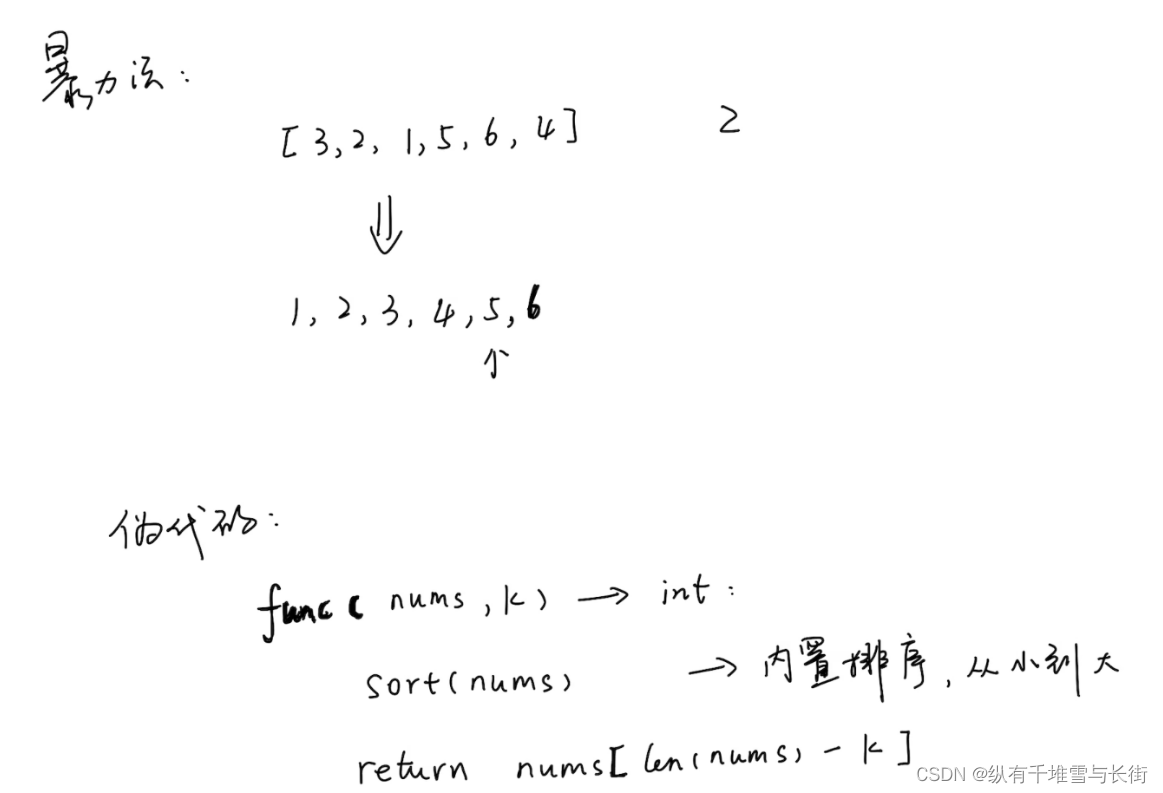 暴力法:
[3,2,1,5,6,4] 2
⇓
1,2,3,4,5,6
↑
伪代码:
func(nums,k) → int:
sort(nums) → 内置排序,从小到大
return nums[len(nums)-k]
CSDN @纵有千堆雪与长街